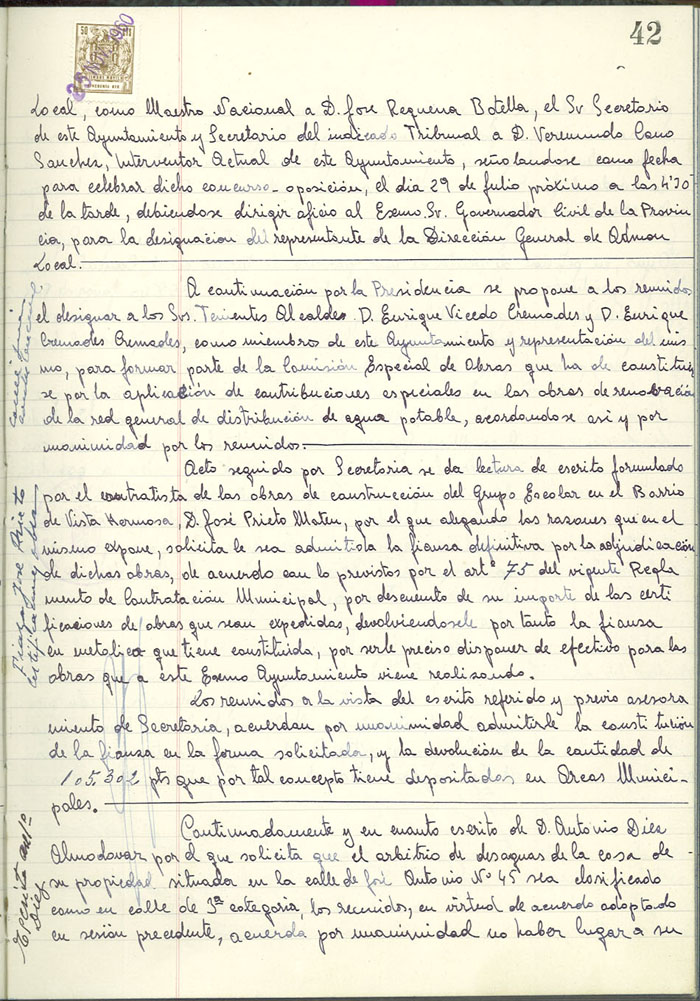 42
50
25 NOV. 1960
Local, como Maestro Nacional a D. Jose Requena Botella, el Sr Secretario
de este Ayuntamiento y Secretario del indicado Tribunal a D. Veremundo Cano
Sanchez, Interventor Actual de este Ayuntamiento, señolandose como fecha
para celebrar dicho concurso-oposición, el dia 29 de Julio próximo a las 4'30
de la tarde, debiendose dirigir oficio al Excmo. Sr. Governador Civil de la Provin
cia, para la designacion del representante de la Dirección General de Admon
Local.
A continuación por la Presidencia se propone a los reunidos
el designar a los Srs. Tenientes Alcaldes D. Enrique Vicedo Cremades y D. Enrique
Cremades Cremades, como miembros de este Ayuntamiento y representación del mis
mo, para formar parte de la Comisión Especial de Obras que ha de constituir
se por la aplicación de contribuciones especiales en las obras de renovación
de la red general de distribución de agua potable, acordandose asi y por
unanimidad por los reunidos.
Acto seguido por Secretaria se da lectura de escrito formulado
por el contratista de las obras de construcción del Grupo Escolar en el Barrio
de Vista Hermosa, D. José Prieto Mateu, por el que alegando las razones que en el
mismo expone, solicita le sea admitida la fianza definitiva por la adjudicación
de dichas obras, de acuerdo con lo previstos por el artº 75 del vigente Regla
mento de Contratación Municipal, por descuento de su importe de las certi
ficaciones de obras que sean expedidas, devolviendosele por tanto la fianza
en metalico que tiene constituida, por serle preciso disponer de efectivo para las
obras que a este Excmo Ayuntamiento viene realizando.
Los reunidos a la vista del escrito referido y previo asesora
miento de Secretaria, acuerdan por unanimidad admitirle la constitución
de la fianza en la forma solicitada, y la devolución de la cantidad de
105.302 pts que por tal concepto tiene depositados en Arcas Munici-
pales.
Continuadamente y en cuanto escrito de D. Antonio Diez
Almodovar por el que solicita que el arbitrio de desagues de la casa de
su propiedad situada en la calle de José Antonio Nº 45 sea clasificado
como en calle de 3ª categoria, los reunidos, en virtud de acuerdo adoptado
en sesión precedente, acuerda por unanimidad no haber lugar a su
Fianza Jose Prieto
Escrito antº
Diez